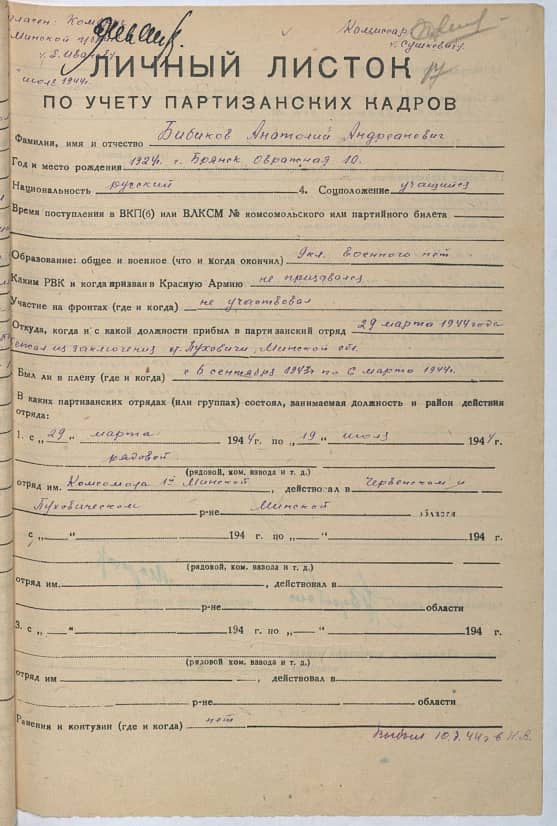 Комиссар
Минской
т. Сушкевич
июль 1944г.
ЛИЧНЫЙ ЛИСТОК
ПО УЧЕТУ ПАРТИЗАНСКИХ КАДРОВ
Фамилия, имя и отчество Бибиков Анатолий Андреанович
Год и место рождения 1924г. г. Брянск Овражная 10.
Национальность русский 4. Соцположение учащийся
Время поступления в ВКП(б) или ВЛКСМ № комсомольского или партийного билета
Образование: общее и военное (что и когда окончил) 9кл. военного нет
Каким РВК и когда призван в Красную Армию не призывался
Участие на фронтах (где и когда) не участвовал
Откуда, когда и с какой должности прибыл в партизанский отряд 29 марта 1944 года
из заключения Пуховичи, Минской обл.
Был ли в плену (где и когда) с 6 сентября 1943г по 6 марта 1944г.
В каких партизанских отрядах (или группах) состоял, занимаемая должность и район действия
отряда:
1. с „29" марта 1944 г. по „19" июля 1944 г.
рядовой
(рядовой, ком. взвода и т. д.)
отряд им. Комсомола 1й Минской, действовал в Червенском и
Пуховическом р-не Минской области
с „ " 194 г. по „ " 194 г.
(рядовой, ком. взвода и т. д.)
отряд им. , действовал в
р-не области
3. с „ " 194 г. по „ " 194 г.
(рядовой ком. взвода и т. д.)
отряд им , действовал в
р-не области
Ранения и контузии (где и когда) нет
Выбыл 10.7.44г в К.А.